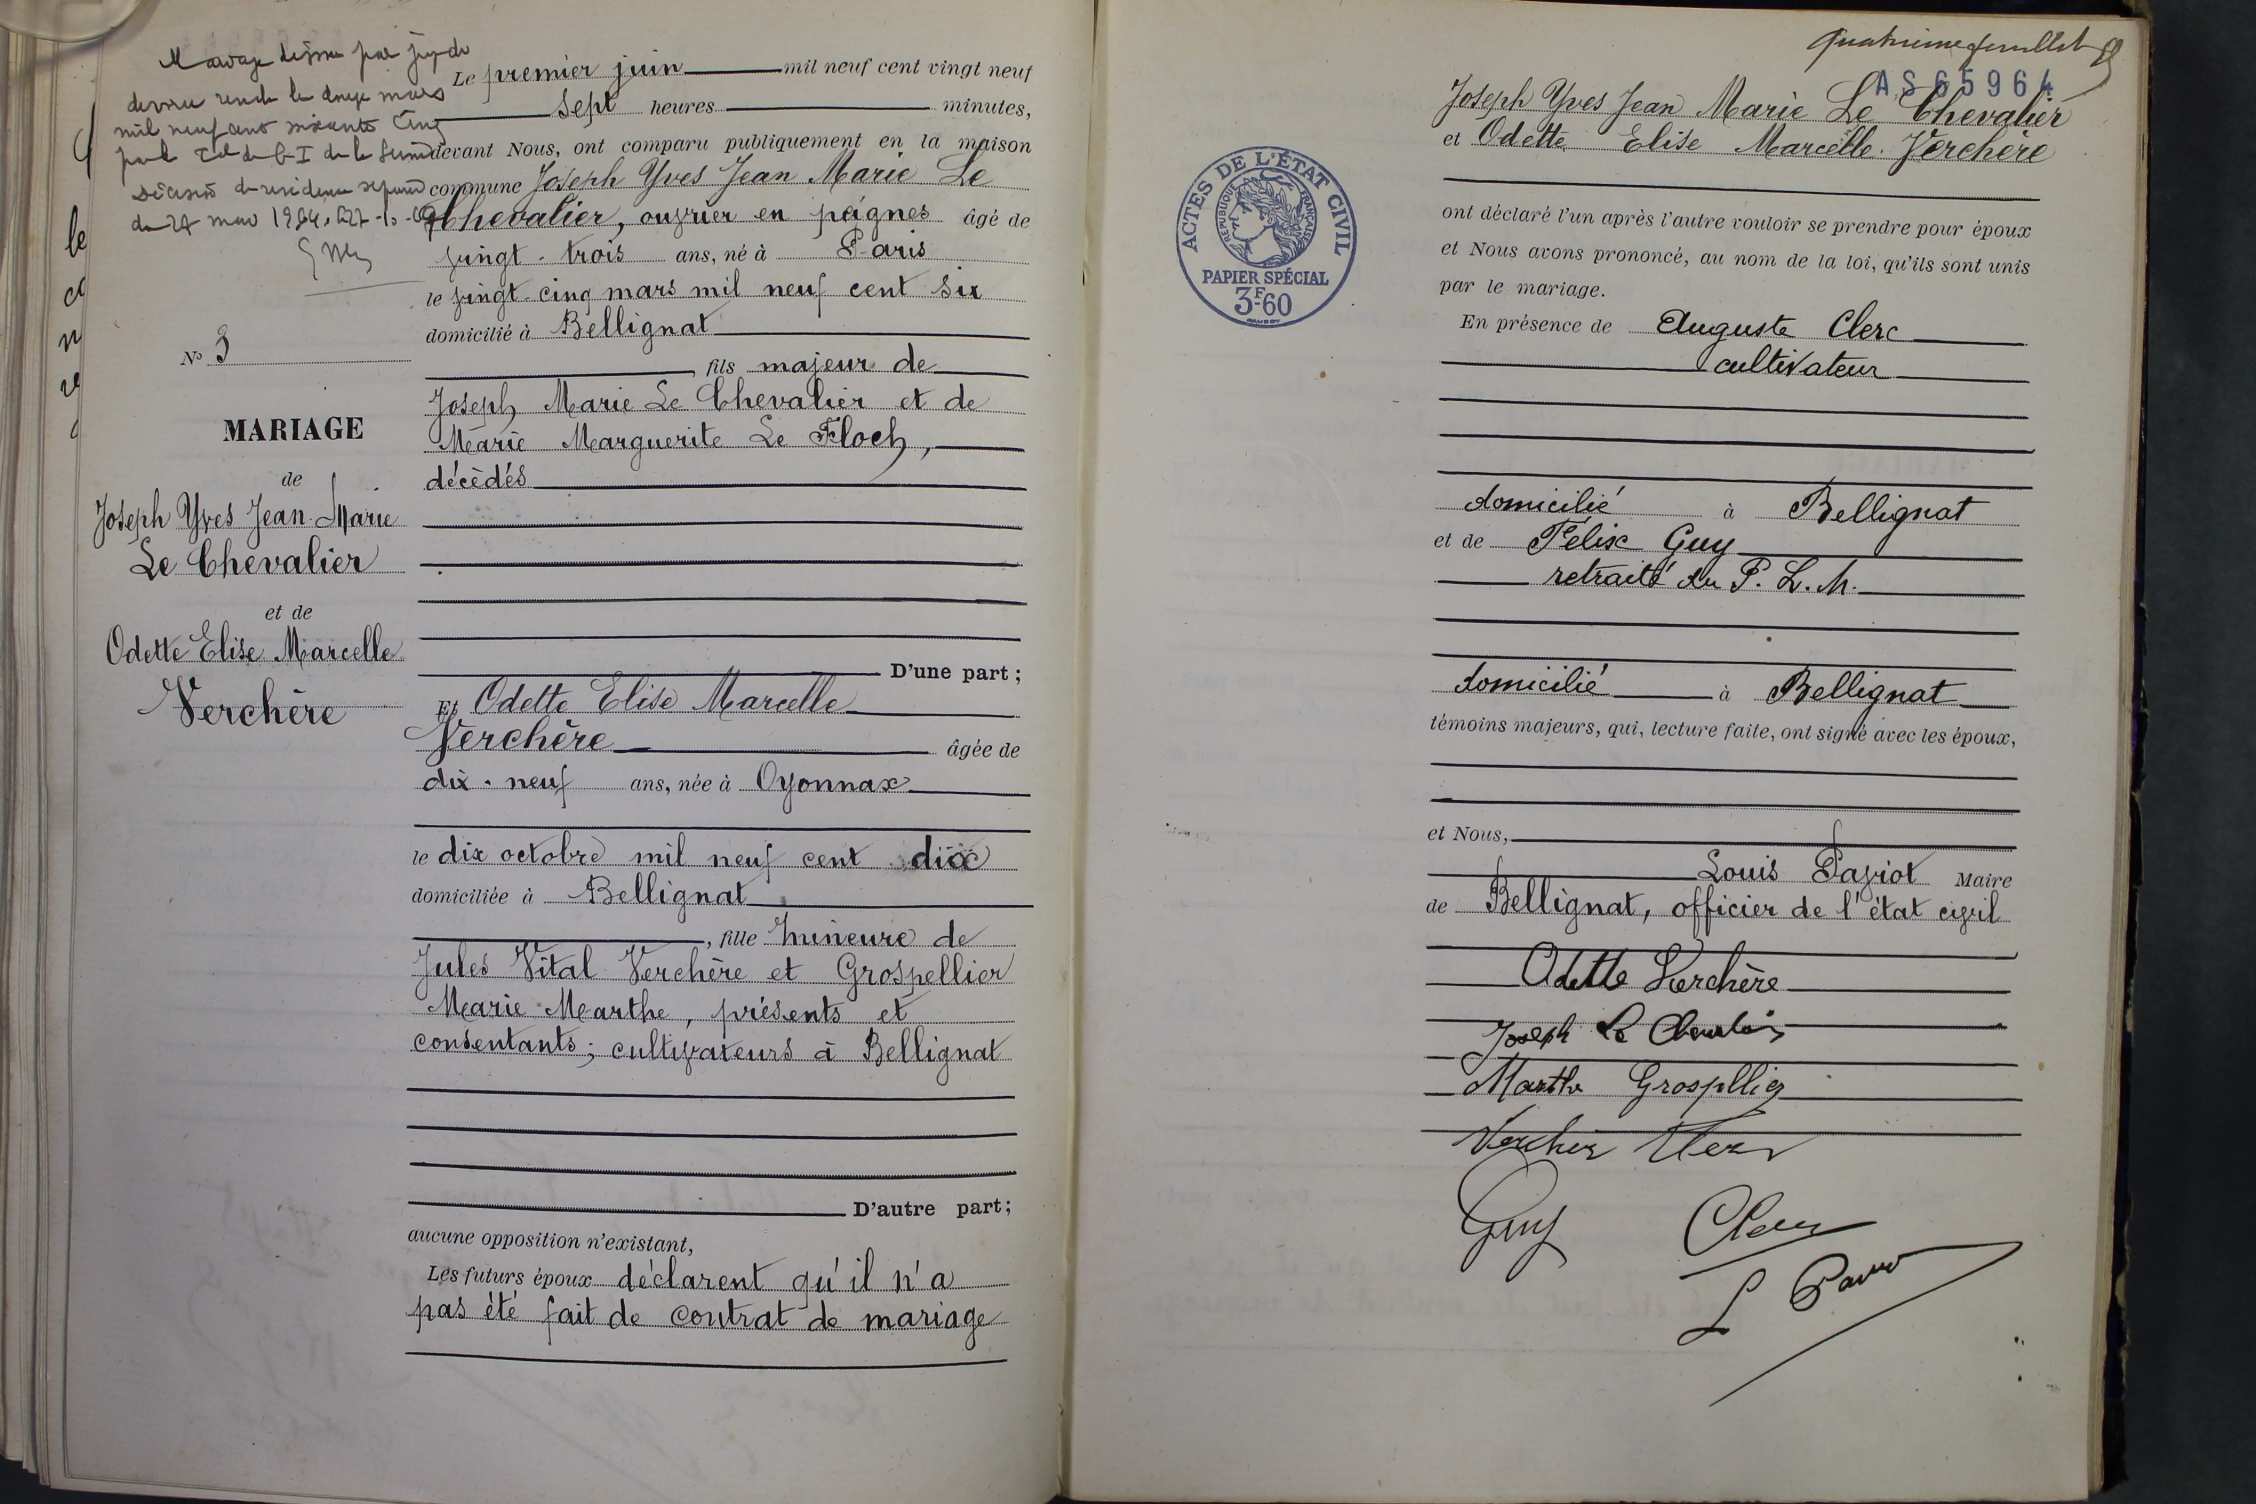 Mariage dissou par jug de
divorce rendu le douze mars
mil neuf cent soixante cinq
par le
décision de résidence séparée
du 27 mar 1964
N° 3
MARIAGE
de
Joseph Yves Jean Marie
Le Chevalier
et de
Odette Elise Marcelle
Verchère
Le premier juin mil neuf cent vingt neuf
sept heures minutes,
devant Nous, ont comparu publiquement en la maison
commune Joseph Yves Jean Marie Le
Chevalier, ouvrier en peignes âgé de
vingt-trois ans, né à Paris
le vingt-cinq mars mil neuf cent six
domicilié à Bellignat
, fils majeur de
Joseph Marie Le Chevalier et de
Marie Marguerite Le Floch,
décédés
D'une part;
Et Odette Elise Marcelle
Verchère âgée de
dix-neuf ans, née à Oyonnax
le dix octobre mil neuf cent dix
domiciliée à Bellignat
, fille mineure de
Jules Vital Verchère et Grospellier
Marie Marthe, présents et
consentants; cultivateurs à Bellignat
D'autre part;
aucune opposition n'existant,
Les futurs époux déclarent qu'il n'a
pas été fait de contrat de mariage
quatrième feuillet
AS65964
Joseph Yves Jean Marie Le Chevalier
et Odette Elise Marcelle Verchère
ACTES DE L'ÉTAT CIVIL
RÉPUBLIQUE FRANÇAISE
PAPIER SPÉCIAL
3F60
ont déclaré l'un après l'autre vouloir se prendre pour époux
et Nous avons prononcé, au nom de la loi, qu'ils sont unis
par le mariage.
En présence de Auguste Clerc
cultivateur
domicilié à Bellignat
et de Félix Guy
retraité du P.L.M.
domicilié à Bellignat
témoins majeurs, qui, lecture faite, ont signé avec les époux,
et Nous,
Louis Payiot Maire
de Bellignat, officier de l'état civil
Odette Verchère
Joseph Le Chevalier
Marthe Grospllier
Guy Clerc
L